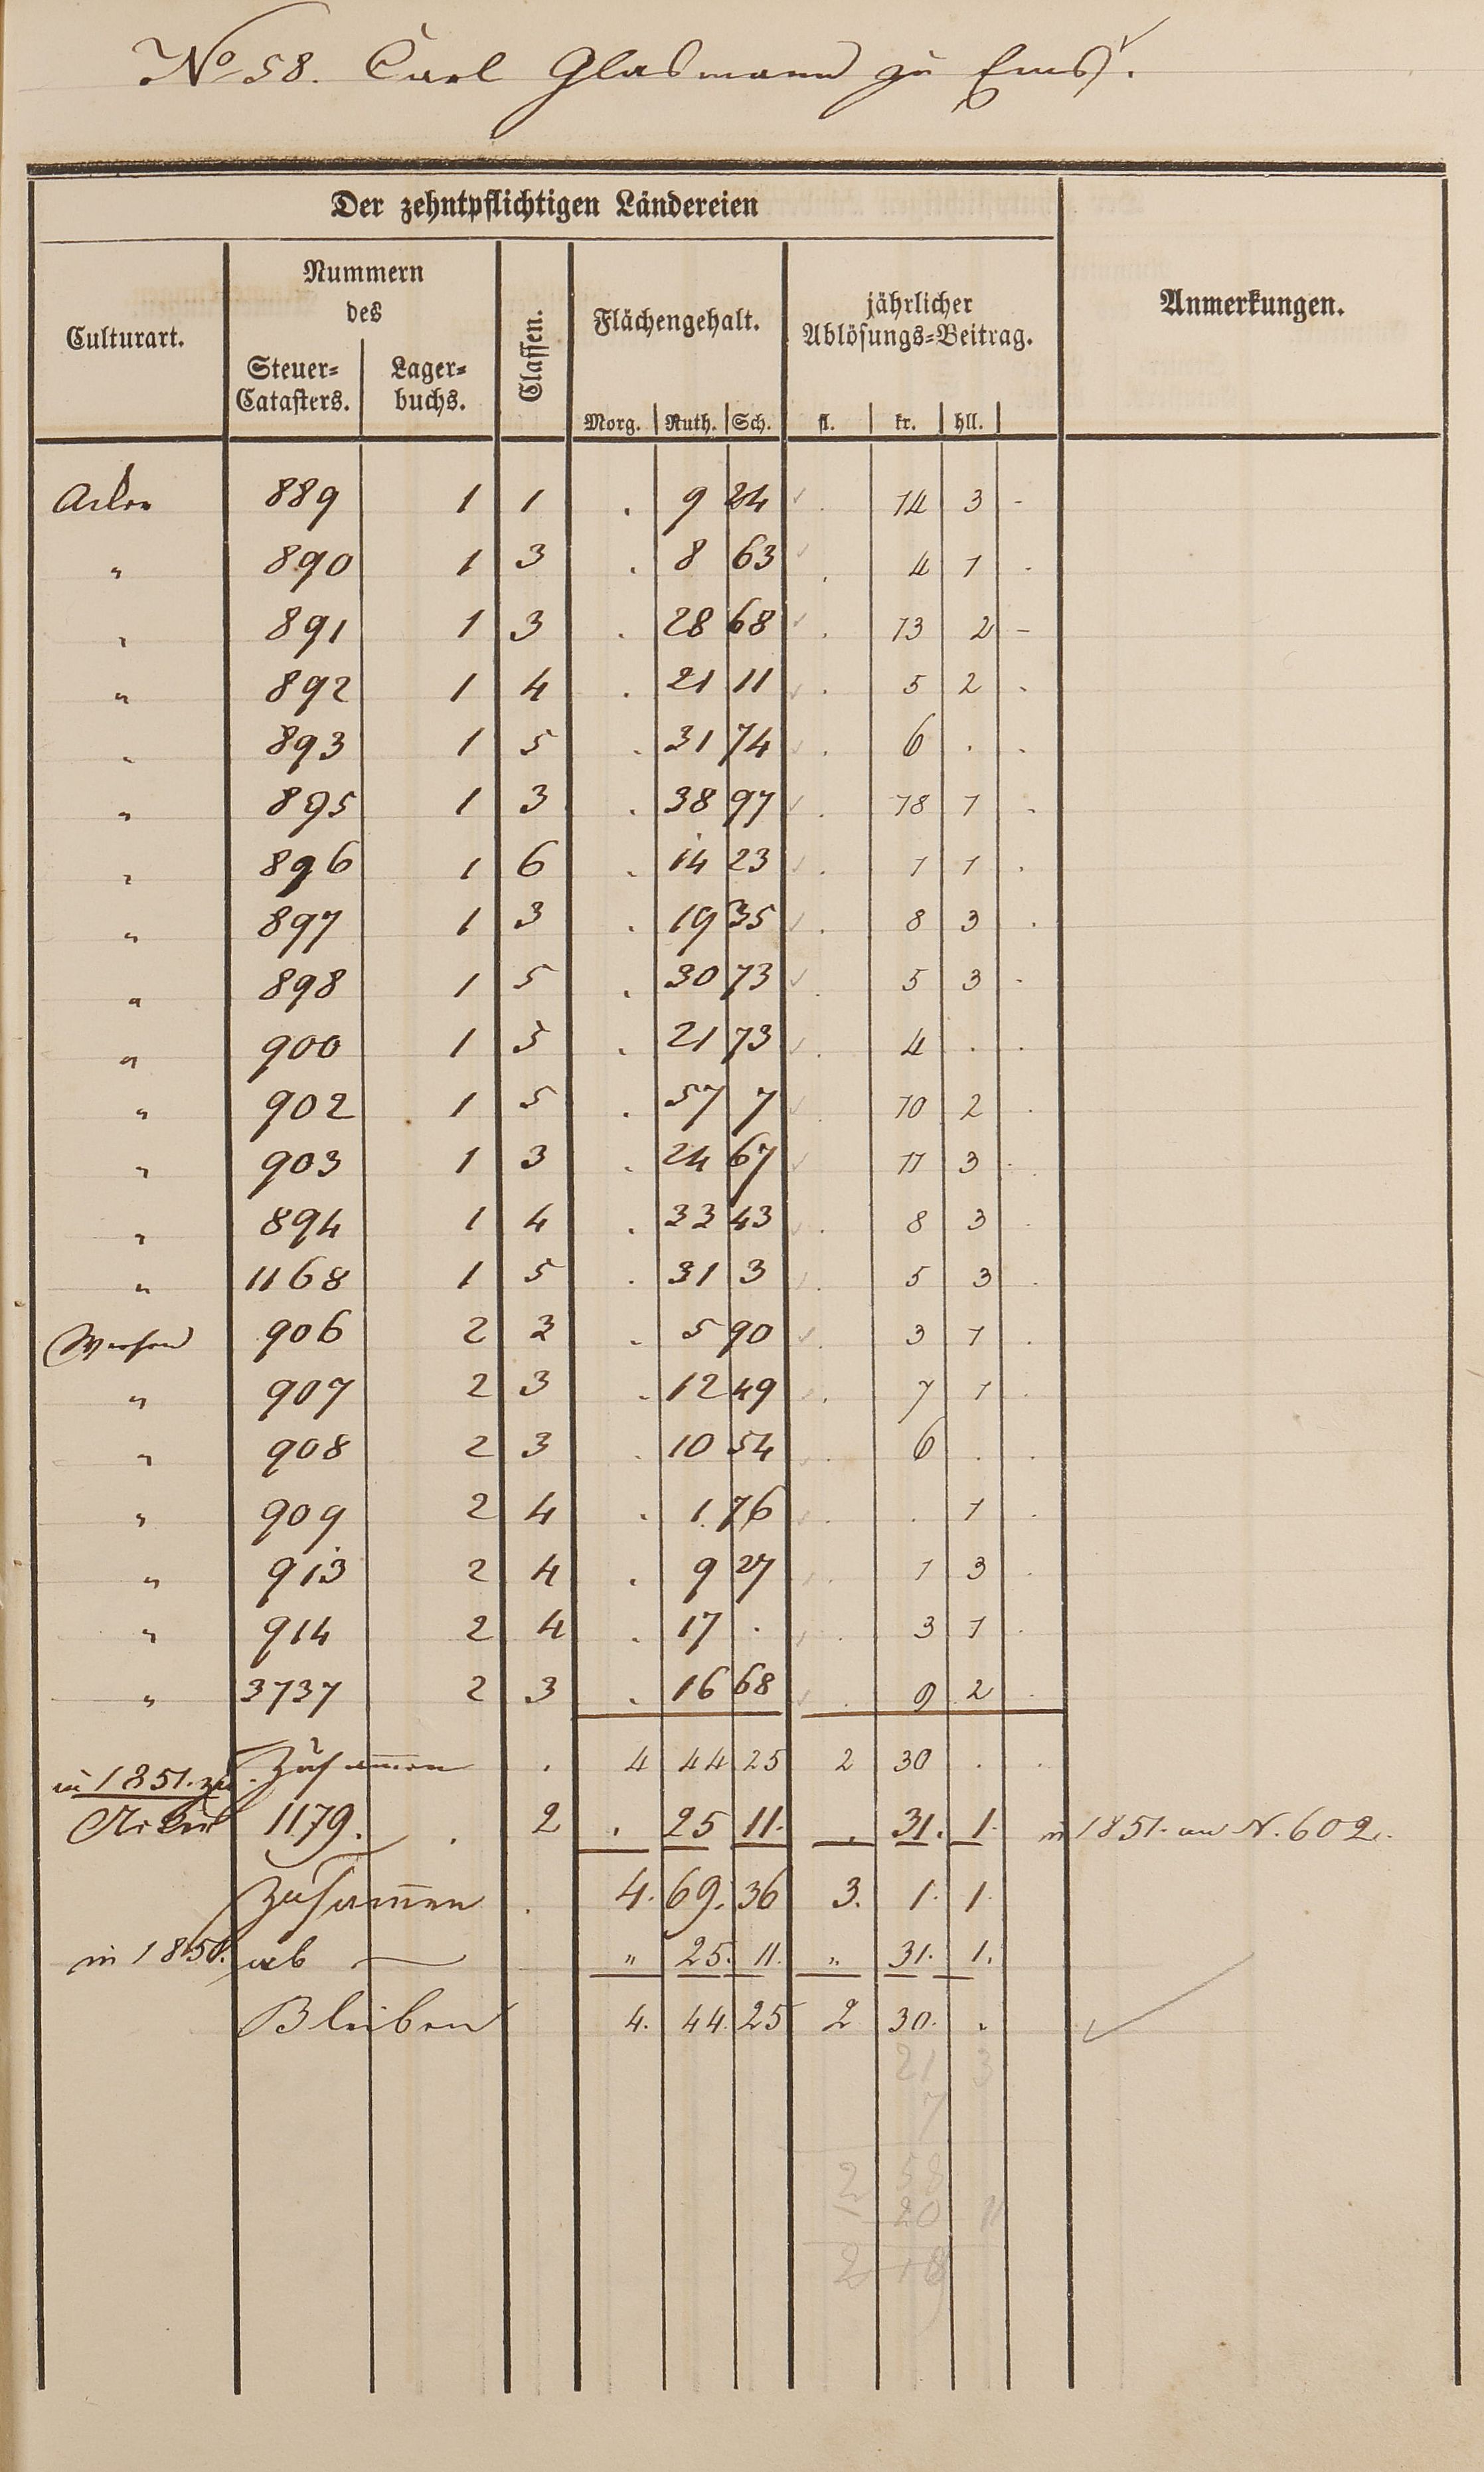 No 58. Carl Glasmann zu Ems.
Der zehntpflichtigen Ländereien
Culturart.
Nummern des
Steuer=Catasters.
Lager=buchs.
Classen.
Flächengehalt.
Morg. Ruth. Sch.
jährlicher Ablösungs=Beitrag.
fl. kr. hll.
Anmerkungen.
Acker 889 1 1 . 9 24 . 14 3 -
" 890 1 3 . 8 63 . 4 1 -
" 891 1 3 . 28 68 . 13 2 -
" 892 1 4 . 21 11 . 5 2 .
" 893 1 5 . 31 74 . 6 . .
" 895 1 3 . 38 97 . 18 1 .
" 896 1 6 . 14 23 . 1 1 .
" 897 1 3 . 19 35 . 8 3 .
" 898 1 5 . 30 73 . 5 3 .
" 900 1 5 . 21 73 . 4 . .
" 902 1 5 . 57 7 . 10 2 .
" 903 1 3 . 24 67 . 11 3 .
" 894 1 4 . 33 43 . 8 3 .
" 1168 1 5 . 31 3 . 5 3 .
Wiesen 906 2 3 . 5 90 . 3 1 .
" 907 2 3 . 12 49 . 7 1 .
" 908 2 3 . 10 54 . 6 . .
" 909 2 4 . 1 76 . . 1 .
" 913 2 4 . 9 27 . 1 3 .
" 914 2 4 . 17 . . 3 1 .
" 3737 2 3 . 16 68 . 9 2 .
Zusammen . 4 44 25 2 30 . .
in 1851. zu
Acker 1179. . 2 . 25 11. . 31. 1. in 1851. an N. 602.
Zusammen . 4. 69. 36 3. 1. 1.
in 1851. ab — " 25. 11. " 31. 1.
Bleiben 4. 44. 25 2 30. .
21 3
7
2 58
20
2 18